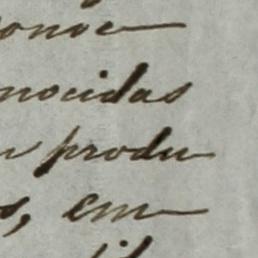 onoc
nocidas
n produ
s, em